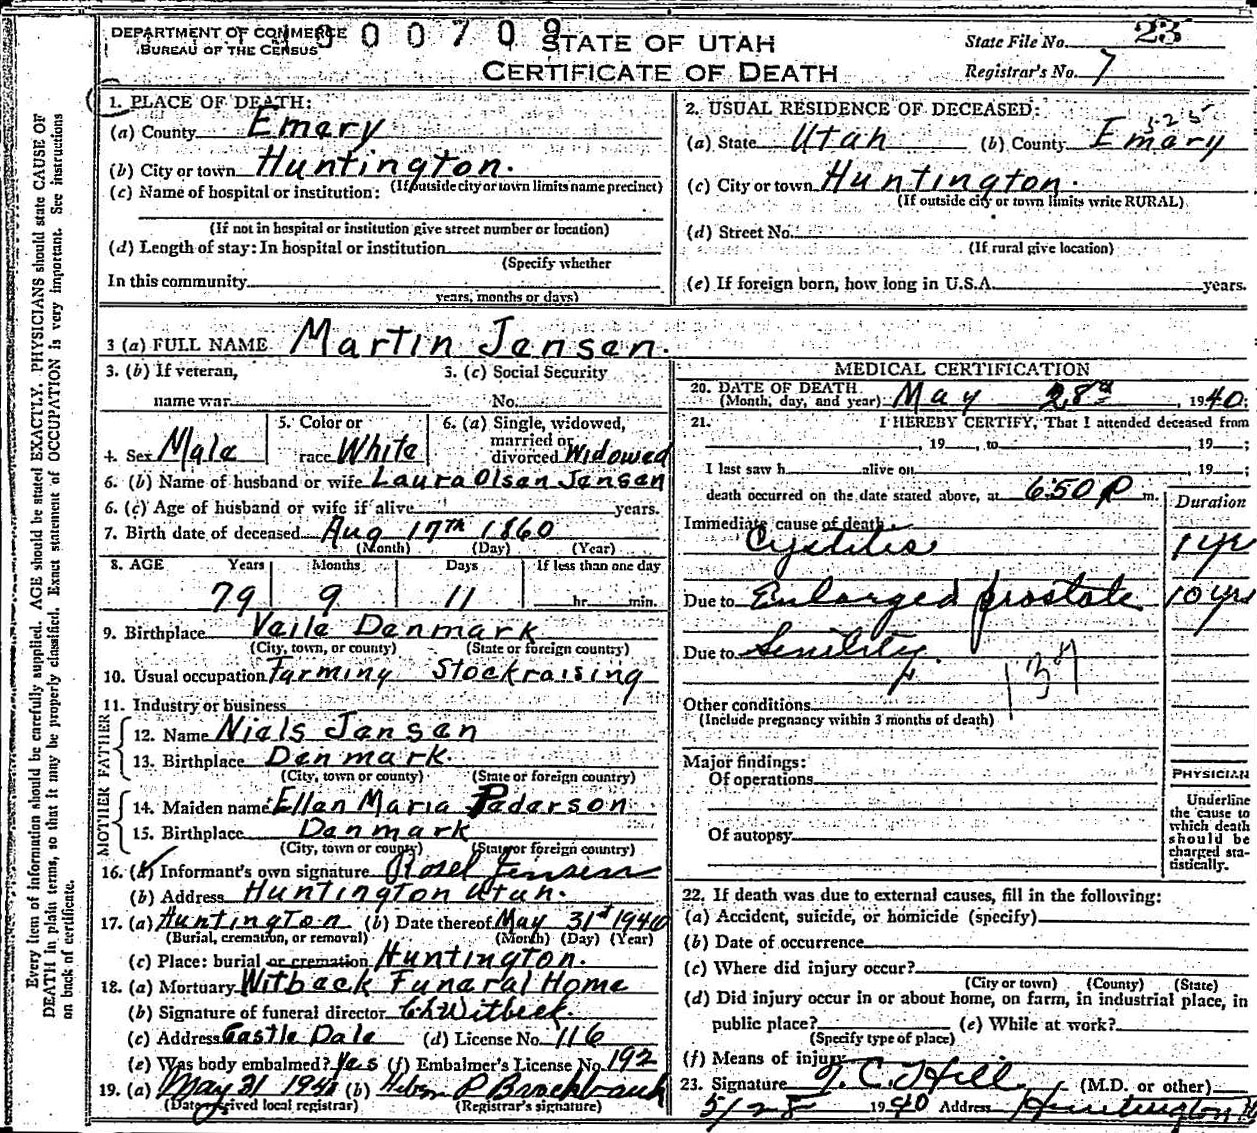 DEPARTMENT OF COMMERCE
BUREAU OF THE CENSUS
300709
STATE OF UTAH
CERTIFICATE OF DEATH
State File No. 23
Registrar's No. 7
Every item of information should be carefully supplied. AGE should be stated EXACTLY. PHYSICIANS should state CAUSE OF
DEATH in plain terms, so that it may be properly classified. Exact statement of OCCUPATION is very important. See instructions
on back of certificate.
1. PLACE OF DEATH:
(a) County Emery
(b) City or town Huntington.
(If outside city or town limits name precinct)
(c) Name of hospital or institution:
(If not in hospital or institution give street number or location)
(d) Length of stay: In hospital or institution
(Specify whether
In this community
years, months or days)
2. USUAL RESIDENCE OF DECEASED:
(a) State Utah (b) County Emery
(c) City or town Huntington.
(If outside city or town limits write RURAL)
(d) Street No.
(If rural give location)
(e) If foreign born, how long in U.S.A. years.
3 (a) FULL NAME Martin Jensen.
3. (b) If veteran, 3. (c) Social Security
name war No.
4. Sex Male 5. Color or race White 6. (a) Single, widowed, married or divorced Widowed
6. (b) Name of husband or wife Laura Olsen Jensen
6. (c) Age of husband or wife if alive years.
7. Birth date of deceased Aug 17th 1860
(Month) (Day) (Year)
8. AGE Years Months Days If less than one day
79 9 11 hr. min.
9. Birthplace Veile Denmark
(City, town, or county) (State or foreign country)
10. Usual occupation Farming Stockraising
11. Industry or business
FATHER
12. Name Niels Jensen
13. Birthplace Denmark.
(City, town or county) (State or foreign country)
MOTHER
14. Maiden name Ellen Maria Pederson
15. Birthplace Denmark
(City, town or county) (State or foreign country)
16. (a) Informant's own signature Jensen
(b) Address Huntington Utah.
17. (a) Huntington (b) Date thereof May 31st 1940
(Burial, cremation, or removal) (Month) (Day) (Year)
(c) Place: burial or cremation Huntington.
18. (a) Mortuary Witbeck Funeral Home
(b) Signature of funeral director Witbeck.
(c) Address Castle Dale (d) License No. 116
(e) Was body embalmed? Yes (f) Embalmer's License No. 192
19. (a) May 31 1940 (b) P Brockbank
(Date received local registrar) (Registrar's signature)
MEDICAL CERTIFICATION
20. DATE OF DEATH
(Month, day, and year) May 28th, 1940;
21. I HEREBY CERTIFY, That I attended deceased from
, 19 , to , 19 ;
I last saw h alive on , 19 ;
death occurred on the date stated above, at 6:50 P m.
Duration
Immediate cause of death
Cystitis 1 yr
Due to Enlarged prostate 10 yrs
Due to Senility
137
Other conditions
(Include pregnancy within 3 months of death)
Major findings:
Of operations
Of autopsy
PHYSICIAN
Underline
the cause to
which death
should be
charged sta-
tistically.
22. If death was due to external causes, fill in the following:
(a) Accident, suicide, or homicide (specify)
(b) Date of occurrence
(c) Where did injury occur?
(City or town) (County) (State)
(d) Did injury occur in or about home, on farm, in industrial place, in
public place? (e) While at work?
(Specify type of place)
(f) Means of injury
23. Signature T. C. Hill (M.D. or other)
5/28 1940 Address Huntington